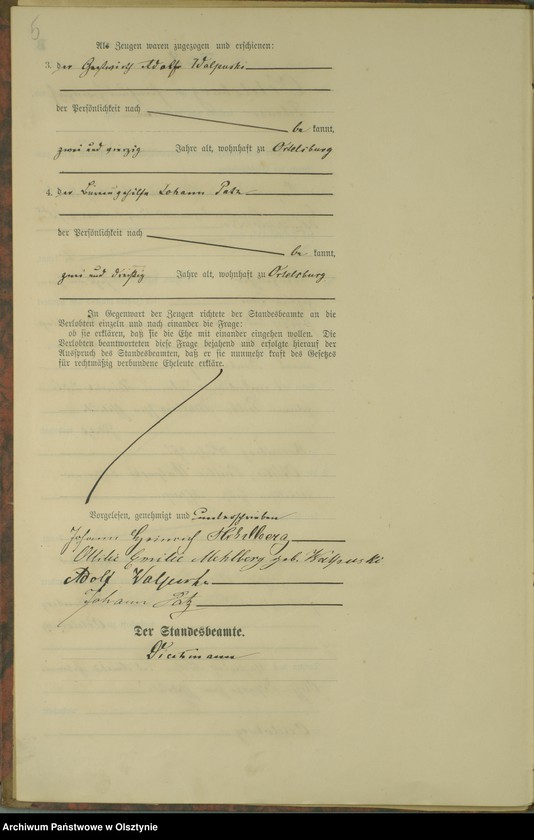 5
Als Zeugen waren zugezogen und erschienen:
3. der Gastwirth Adolf Walpuski
der Persönlichkeit nach
be kannt,
zwei und vierzig Jahre alt, wohnhaft zu Ortelsburg
4. der Johann Patz
der Persönlichkeit nach
be kannt,
zwei und dreißig Jahre alt, wohnhaft zu Ortelsburg
In Gegenwart der Zeugen richtete der Standesbeamte an die
Verlobten einzeln und nach einander die Frage:
ob sie erklären, daß sie die Ehe mit einander eingehen wollen. Die
Verlobten beantworteten diese Frage bejahend und erfolgte hierauf der
Ausspruch des Standesbeamten, daß er sie nunmehr kraft des Gesetzes
für rechtmäßig verbundene Eheleute erkläre.
Vorgelesen, genehmigt und unterschrieben
Johann Heinrich
Ottilie Emilie Mühlberg geb. Walpuski
Adolf Walpuski
Johann Patz
Der Standesbeamte.
Dieckmann
Archiwum Państwowe w Olsztynie